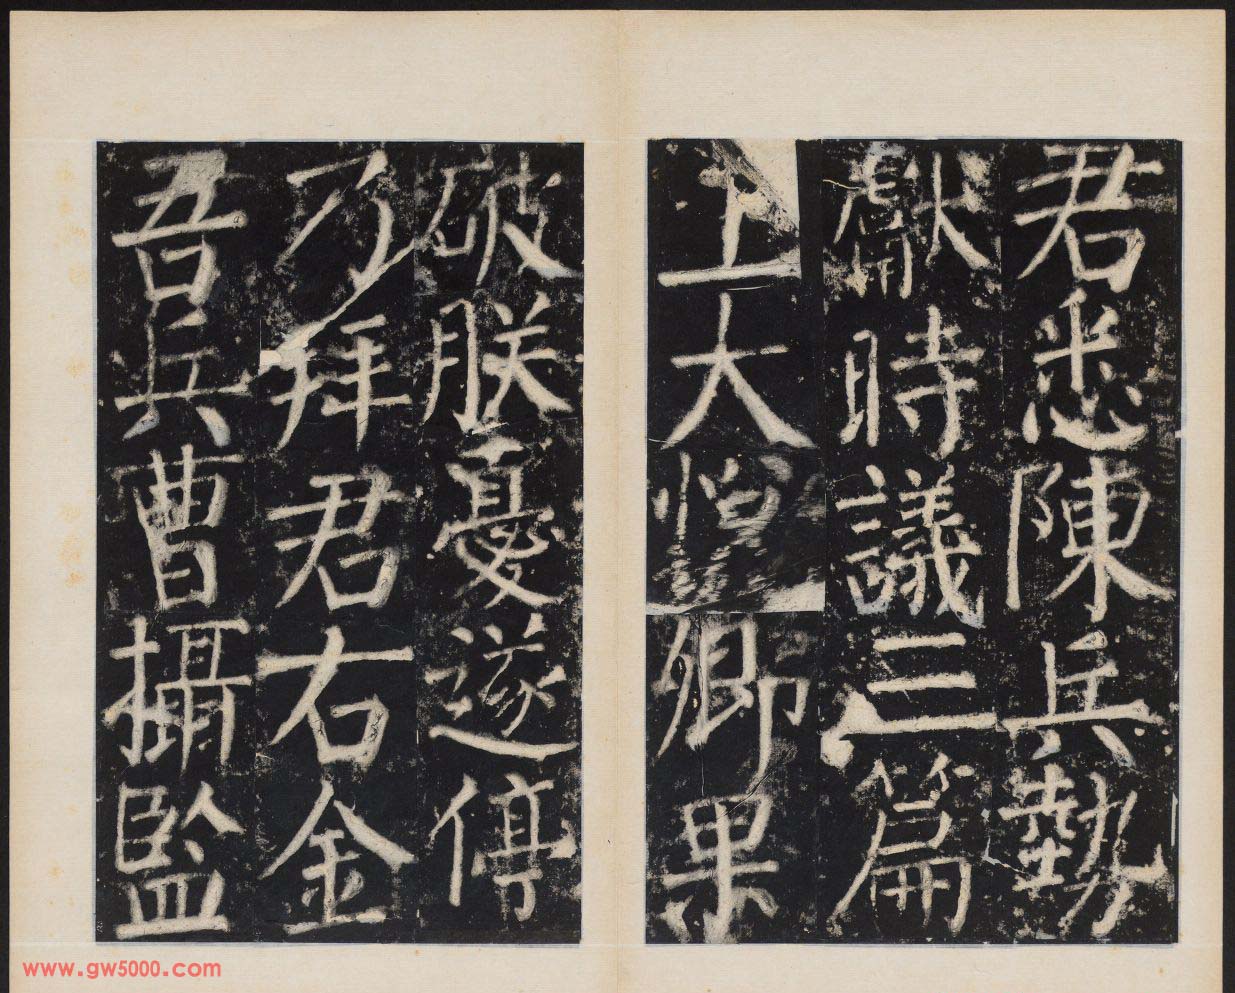 君悉陳兵勢
獻時議三篇
上大悅卿果
破朕憂遂停
乃拜君右金
吾兵曹攝監
www.gw5000.com